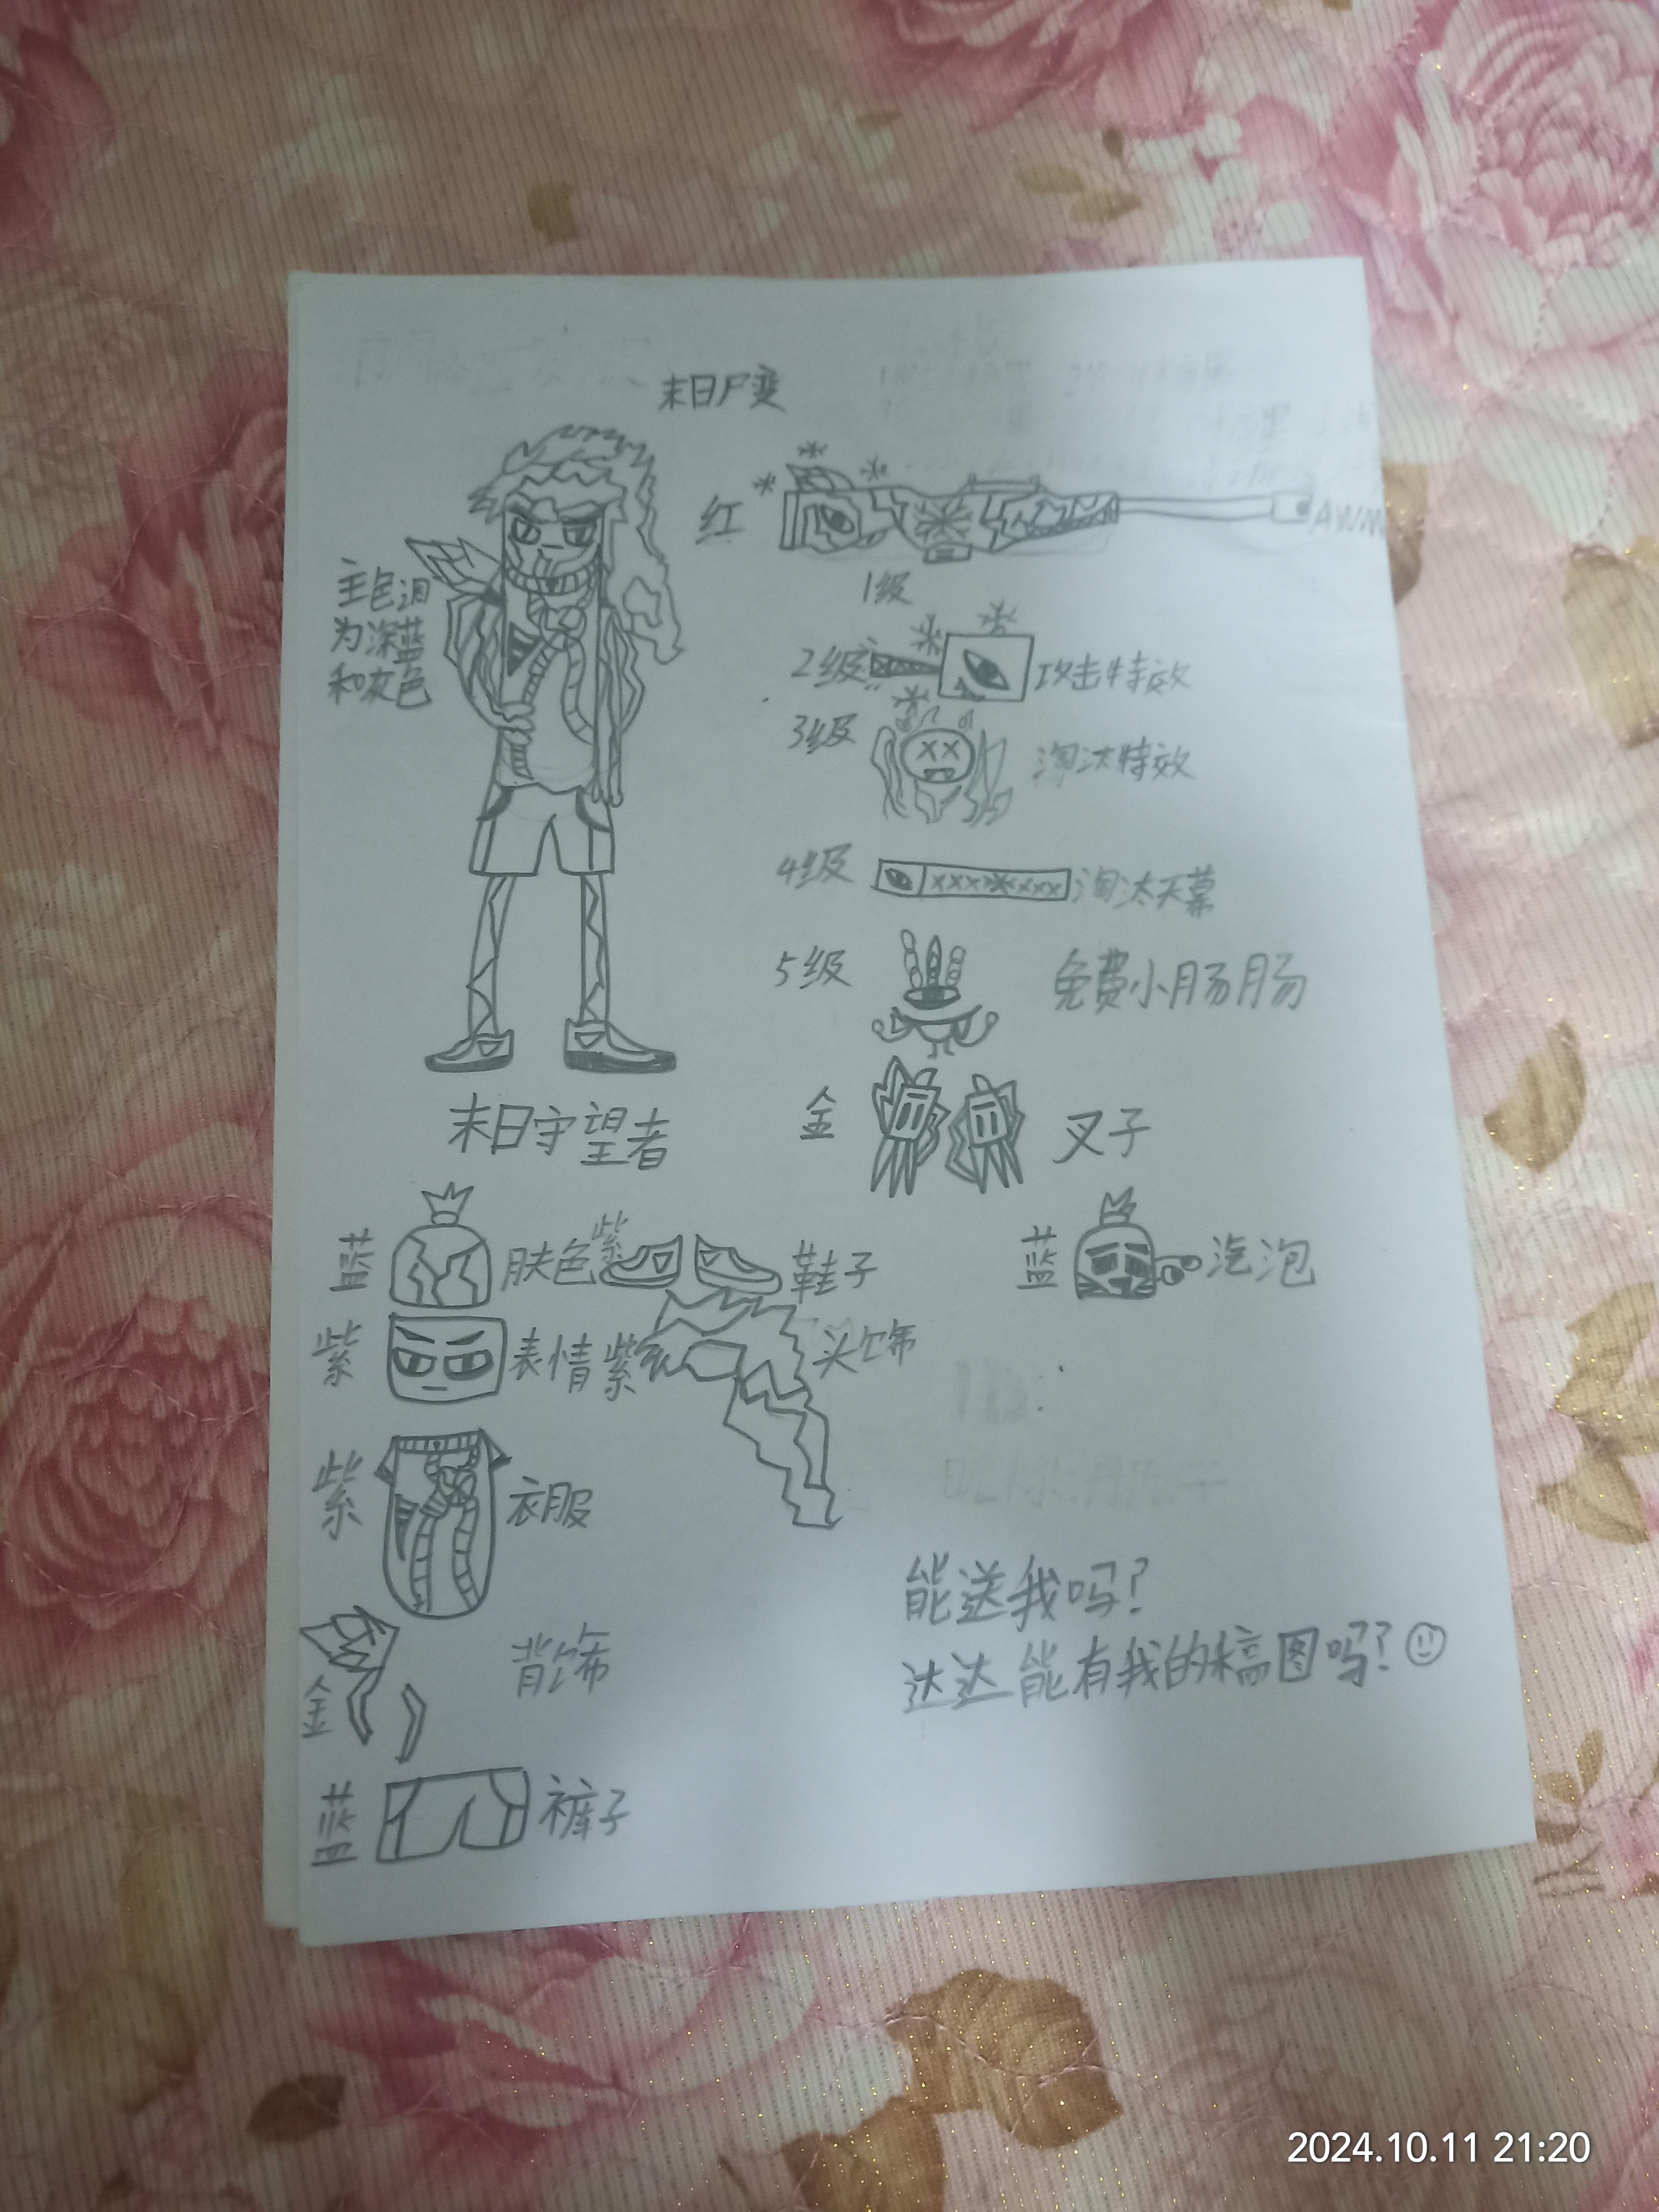 末日尸变
红
AWM
1级
主色调
为深蓝
和灰色
2级
攻击特效
3级
淘汰特效
4级
淘汰天幕
5级
免费小肠肠
末日守望者
金
叉子
蓝
肤色
紫
鞋子
蓝
泡
紫
表情
紫
头饰
紫
衣服
金
背饰
蓝
裤子
能送我吗?
达达能有我的稿图吗?
2024.10.11 21:20